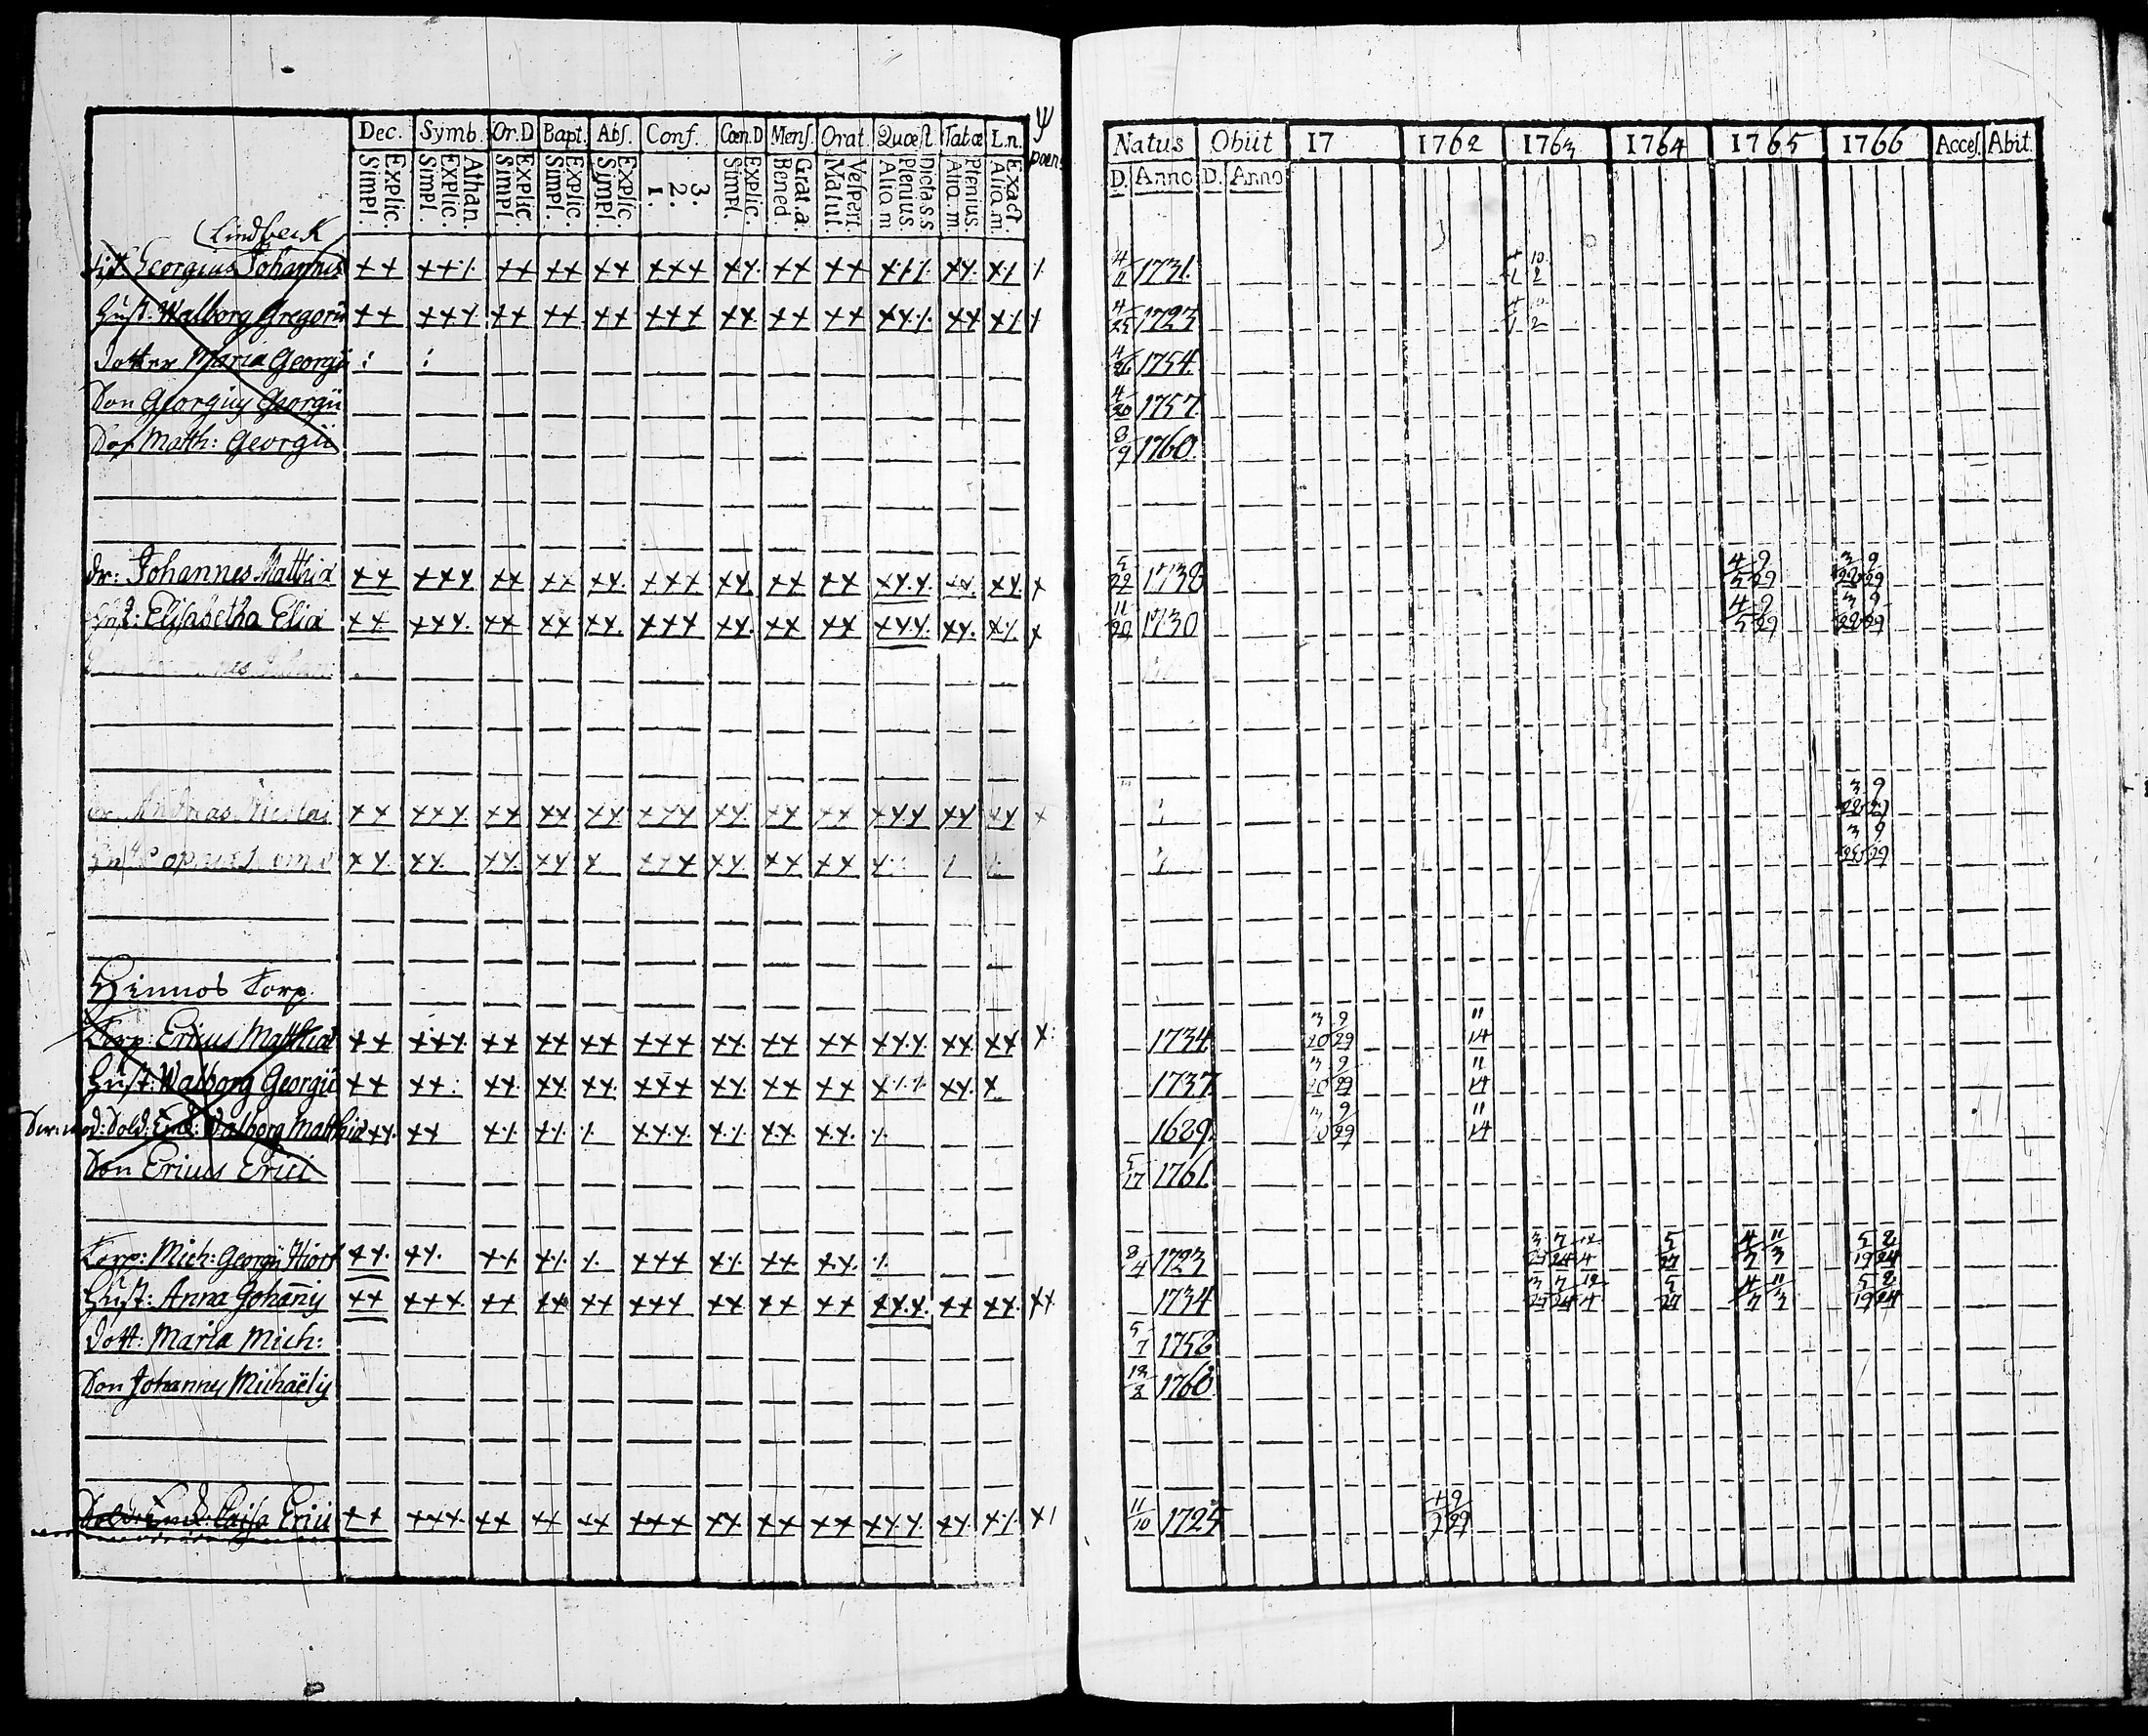 Dec. Symb. Or.D Bapt. Abs. Conf. Cœn.D Mens. Orat. Quæst. Tabæ L.n. ψ pœn.
Explic. Simpl. Athan. Explic. Simpl. Explic. Simpl. Explic. Simpl. Explic. Simpl. 3. 2. 1. Explic. Simpl. Grat.a. Bened. Vespert. Matut. Dictass Plenius Aliq.m Plenius. Aliq.m. Exact Aliq.m.
Lindbeck
Georgius Johannis
Hust: Walborg Gregorii
Dotter Maria Georgii
Son Georgius Georgii
Son Matth: Georgii
dr: Johannes Matthiæ
Hust: Elisabetha Eliæ
Andreas Nicolai
Hinnos Torp.
Torp: Ericus Matthiæ
Hust: Walborg Georgii
Sold: Enk: Valborg Matthiæ
Son Ericus Erici
Torp: Mich: Georgii Hiort
Hust: Anna Johañis
Dott: Maria Mich:
Son Johannes Michaëlis
Sold: Enk: Caisa Erici
Natus Obiit 17 1762 1763 1764 1765 1766 Acces. Abit.
D. Anno D. Anno
4/11 1731. 4/1 10/2
4/25 1723 4/1 10/2
4/26 1754.
4/20 1757
8/9 1760.
5/22 1738 4/5 9/29 3/22 9/29
11/20 1730 4/5 9/29 3/22 9/29
3/22 9/29
3/22 9/29
1734 3/20 9/29 11/14
1737 3/20 9/29 11/14
1689. 3/20 9/29 11/14
5/17 1761.
8/4 1723 3/27 7/24 12/4 5/27 4/7 11/3 5/19 8/24
1734 3/27 7/24 12/4 5/27 4/7 11/3 5/19 8/24
5/7 1758
12/8 1760
11/10 1725 9/29